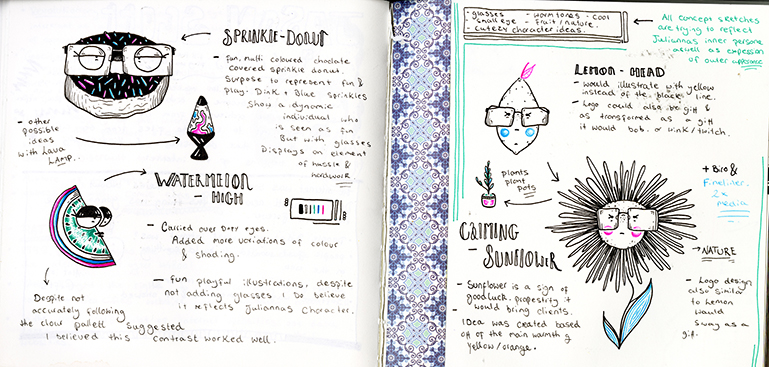 SPRINKLE-DONUT
- fun, multi coloured choclate
covered sprinkle donut.
Surpose to represent fun &
play. Pink & Blue sprinkles
show a dynamic
individual who
is seen as fun
But with glasses
Displays an element
of hassle &
hardwork
- other
possible
ideas
with Lava
LAMP.
WATERMELON
- HIGH
- Carried over Dotty eyes.
Added more variations of colour
& shading.
- fun playful illustrations, despite
not adding glasses I do believe
it reflects Juliannas Character.
Despite not
accurately following
the clour pallett suggested
I believed this contrast worked well.
- glasses - warm tones - cool
- small eye - fruit / nature.
- cutezy character ideas.
All concept sketches
are trying to reflect
Juliannas inner persona
aswell as expression
of outer apperance
LEMON - HEAD
- would illustrate with yellow
instead of the black line.
- Logo could also be gif &
as transformed as a gif
it would bob. or wink / twitch.
plants
plant
pots
+ Biro &
Fineliner.
2x
media
CALMING
- SUNFLOWER
→ NATURE
- Sunflower is a sign of
goodluck. propesrity it
- would bring clients.
IDea was created based
off of the main warmth of
Yellow / orange.
- Logo design
also similar
to Lemon
would
Sway as a
gif.